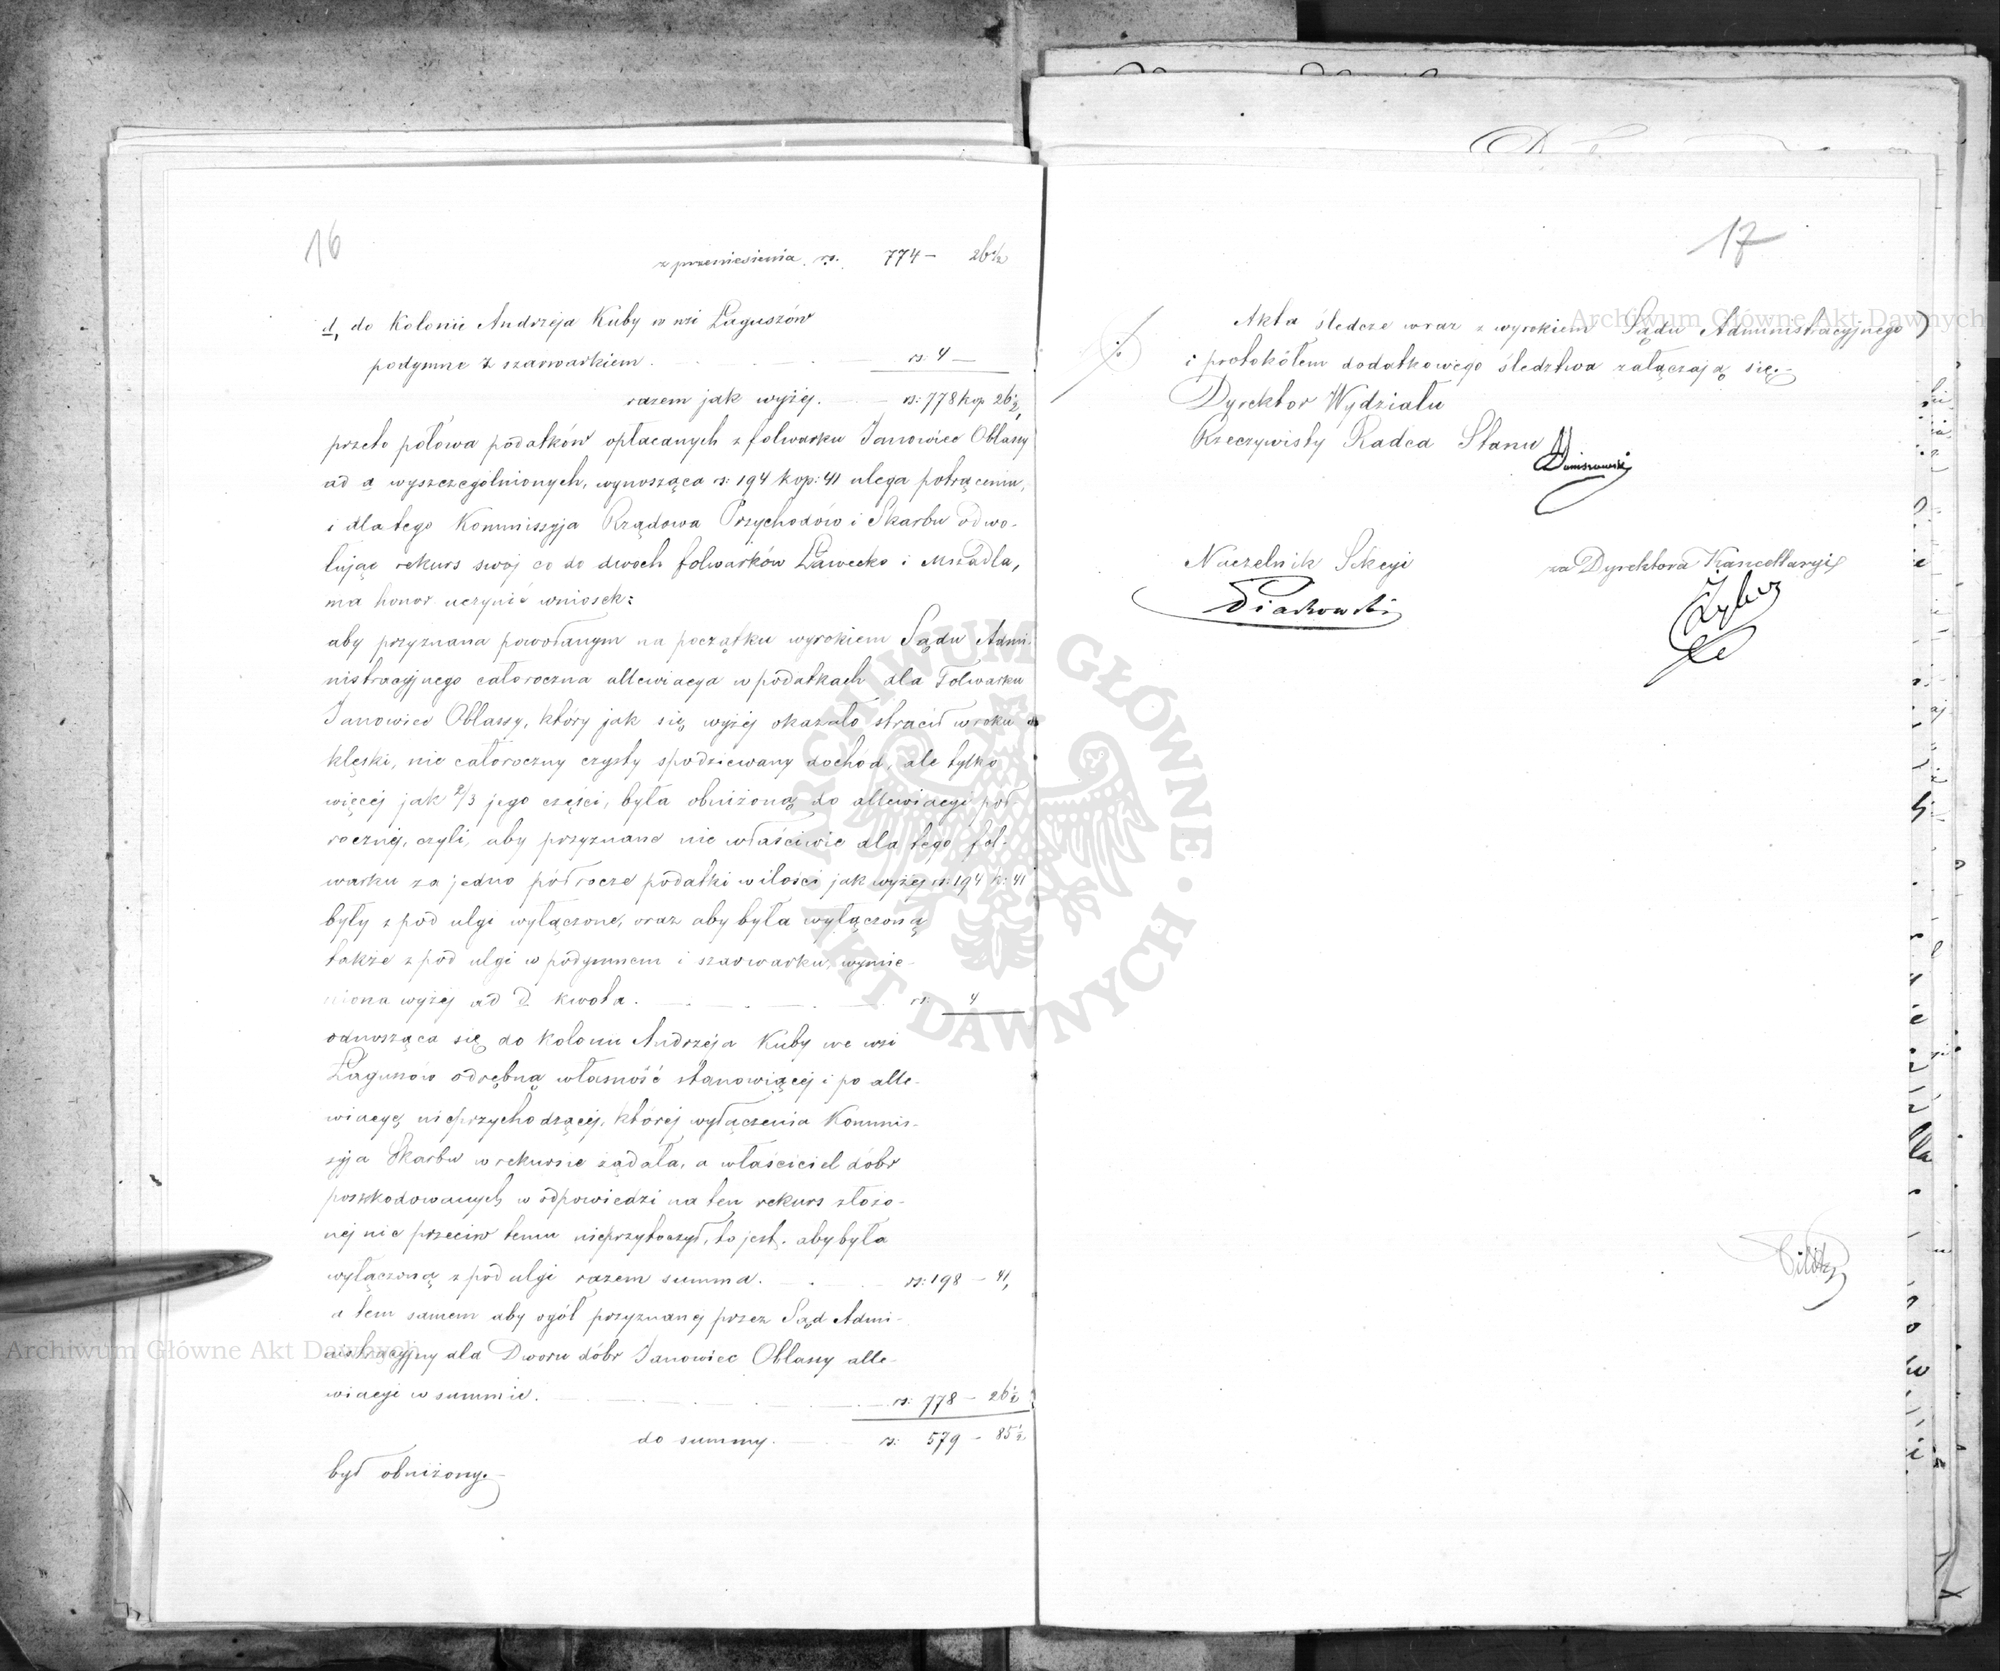 16
z przeniesienia rs. 774 – 26½
d, do Kolonii Andrzeja Kuby w wsi Łaguszów
podymne z szarwarkiem . rs: 4 —
razem jak wyżej. — rs: 778 kop 26½,
przeto połowa podatków opłacanych z folwarku Janowiec Oblassy
ad a wyszczególnionych, wynosząca rs: 194 kop: 41 ulega potrąceniu,
i dla tego Kommissyja Rządowa Przychodów i Skarbu odwo-
łując rekurs swój co do dwóch folwarków Ławecko i Mszadla,
ma honor uczynić wniosek:
aby przyznana powołanym na początku wyrokiem Sądu Admi-
nistracyjnego całoroczna allewiacya w podatkach dla Folwarku
Janowiec Oblassy, który jak się wyżej okazało stracił w roku
klęski, nie całoroczny czysty spodziewany dochód, ale tylko
więcej jak 2/3 jego części, była obniżoną do allewiacyi pół-
rocznej, czyli, aby przyznane nie właściwie dla tego fol-
warku za jedno półrocze podatki w ilości jak wyżej rs: 194 k: 41
były z pod ulgi wyłączone, oraz aby była wyłączoną
także z pod ulgi w podymnem i szarwarku, wymie-
niona wyżej ad d kwota. rs: 4
odnosząca się do kolonii Andrzeja Kuby we wsi
Łaguszów odrębną własność stanowiącej i po alle-
wiacyę nieprzychodzącej, której wyłączenia Kommis-
syja Skarbu w rekursie żądała, a właściciel dóbr
poszkodowanych w odpowiedzi na ten rekurs złożo-
nej nic przeciw temu nieprzytoczył, to jest. aby była
wyłączoną z pod ulgi razem summa. rs: 198 – 41,
a tem samem aby ogół przyznanej przez Sąd Admi-
nistracyjny dla Dworu dóbr Janowiec Oblassy alle-
wiacyi w summie. rs: 778 – 26½
do summy. rs: 579 – 85½
był obniżony.–
17
Akta śledcze wraz z wyrokiem Sądu Administracyjnego
i protokółem dodatkowego śledztwa załączają się.–
Dyrektor Wydziału
Rzeczywisty Radca Stanu
Naczelnik Sekcyi
za Dyrektora Kancellaryi
Piaskowski
Archiwum Główne Akt Dawnych
Archiwum Główne Akt Dawnych
ARCHIWUM GŁÓWNE AKT DAWNYCH